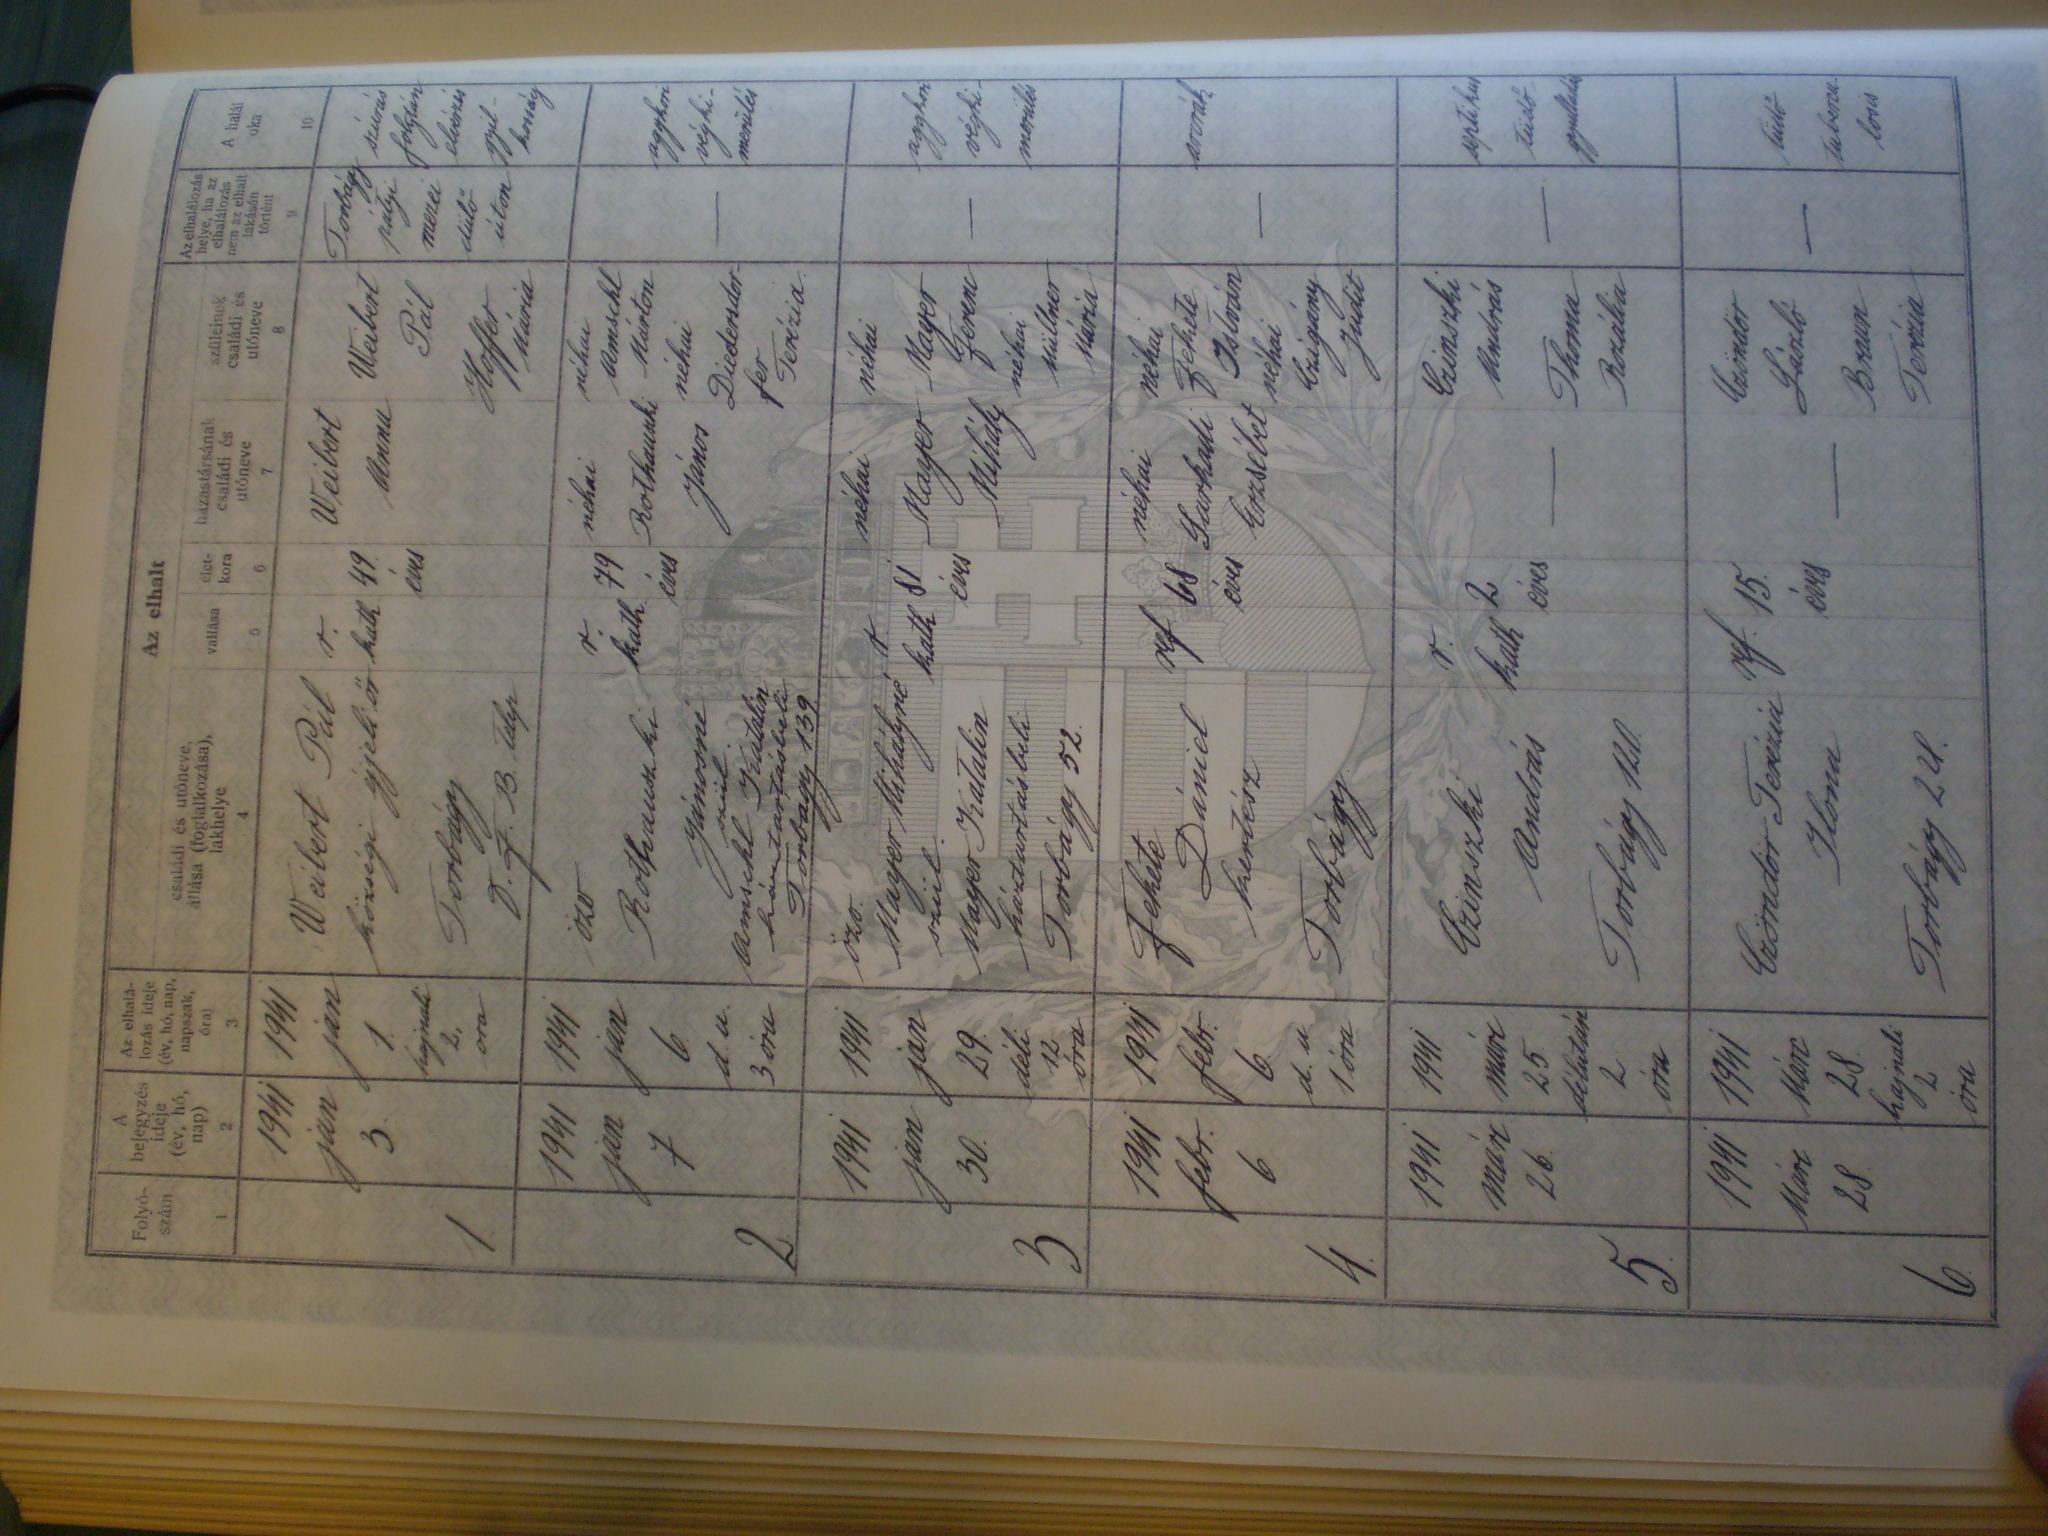 Az elhalt
Folyó-
szám
A
bejegyzés
ideje
(év, hó,
nap)
Az elhalá-
lozás ideje
(év, hó, nap,
napszak,
óra)
családi és utóneve,
állása (foglalkozása),
lakhelye
vallása
élet-
kora
házastársának
családi és
utóneve
szüleinek
családi és
utóneve
Az elhalálozás
helye, ha az
elhalálozás
nem az elhalt
lakásán
történt
A halál
oka
1 2 3 4 5 6 7 8 9 10
1.
1941
jan
3.
1941
jan
1.
hajnali
2.
óra
Weibert Pál
községi éjjeli őr
Torbágy
r.
kath.
49.
éves
Weibert
Anna
Weibert
Pál
Hoffer
Mária
Torbágy
pátyi
mezei
dülő
úton
szúrás
folytán
elvérzés
gyil-
kosság
2.
1941
jan
7
1941
jan
6.
d. u.
3 óra
özv
Rothauszki
Jánosné
szül.
Amsehl Katalin
háztartásbeli
Torbágy 139
r.
kath.
79
éves
néhai
Rothauszki
János
néhai
Amsehl
Márton
néhai
Diedersdor-
fer
Terézia.
—
aggkori
végki-
merülés
3
1941
jan
30.
1941
jan
29.
déli
12
óra
özv.
Mayer Mihályné
szül.
Mayer Katalin
háztartásbeli
Torbágy 52.
r.
kath
81
éves
néhai
Mayer
Mihály
néhai
Mayer
Ferenc
néhai
Müllner
Mária
—
aggkori
végki-
merülés
4.
1941
febr.
6
1941
febr.
6.
d. u
1 óra
Fekete
Dániel
kertész
Torbágy
ref
68
éves
néhai
Sarkadi
Erzsébet
néhai
Fekete
István
néhai
Czigány
Judit
—
5.
1941
márc
26.
1941
márc
25.
délután
2
óra
Czinszki
András
Torbágy 120.
r.
kath
2
éves
—
Czinszki
András
Thoma
Rozália
—
septikus
tüdő-
gyulladás
6.
1941
Márc
28.
1941
Márc
28.
hajnali
2
óra
Czöndör Terézia
Ilona
Torbágy 228.
ref.
15.
éves
—
Czöndör
László
Braun
Terézia
—
tüdő